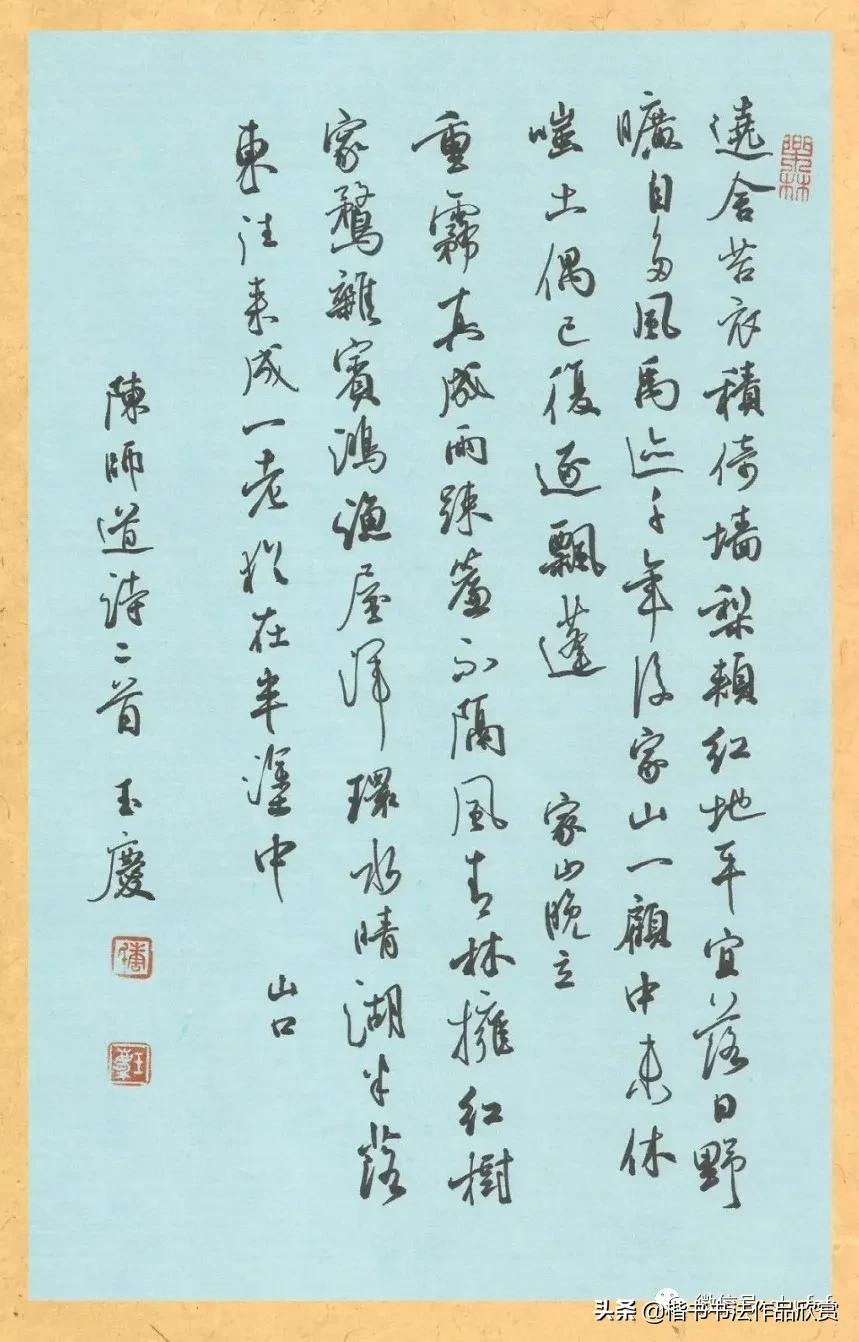 遶舍苔衣積倚墻梨頰紅地平宜落日野
曠自多風禹迹千年後家山一顧中未休
嗤土偶已復逐飄蓬 家山晚立
重霧真成雨疎簾不隔風青林擁紅樹
家鶩雜賓鴻漁屋渾環水晴湖半落
東往來成一老猶在半塗中 山口
陳師道詩二首 玉慶
头条 @楷书书法作品欣赏